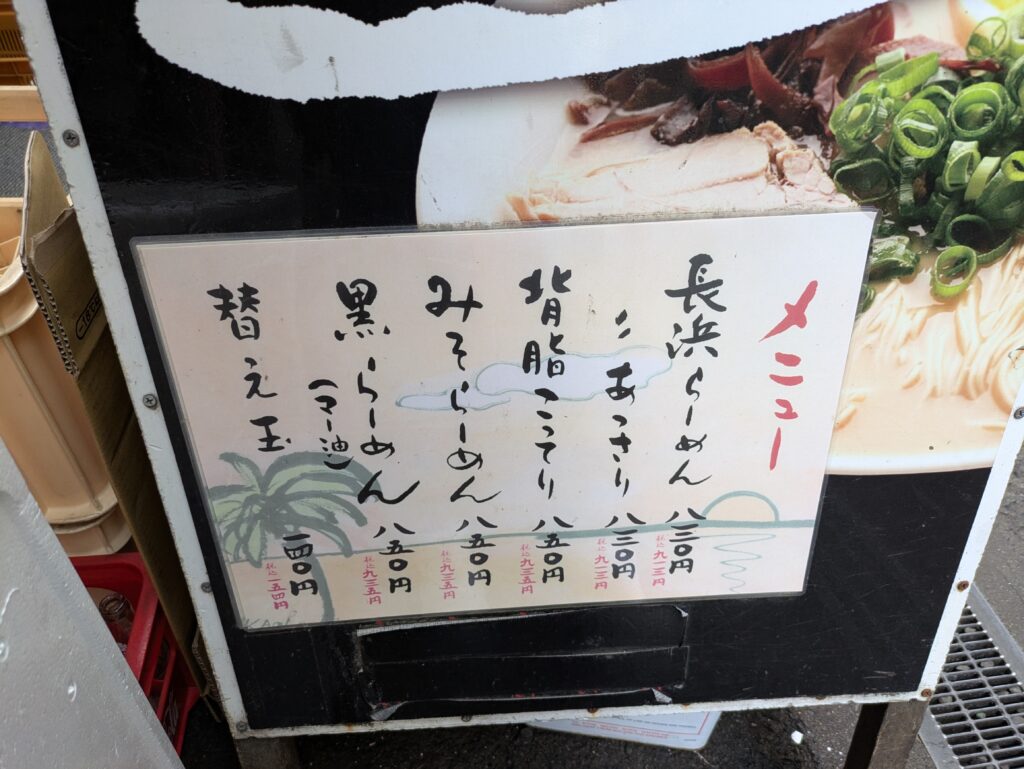 メニュー
長浜らーめん 八三〇円
税込九一三円
〃 あっさり 八三〇円
税込九一三円
背脂こってり 八五〇円
税込九三五円
みそらーめん 八五〇円
税込九三五円
黒らーめん 八五〇円
(マー油)
税込九三五円
替え玉 一四〇円
税込一五四円